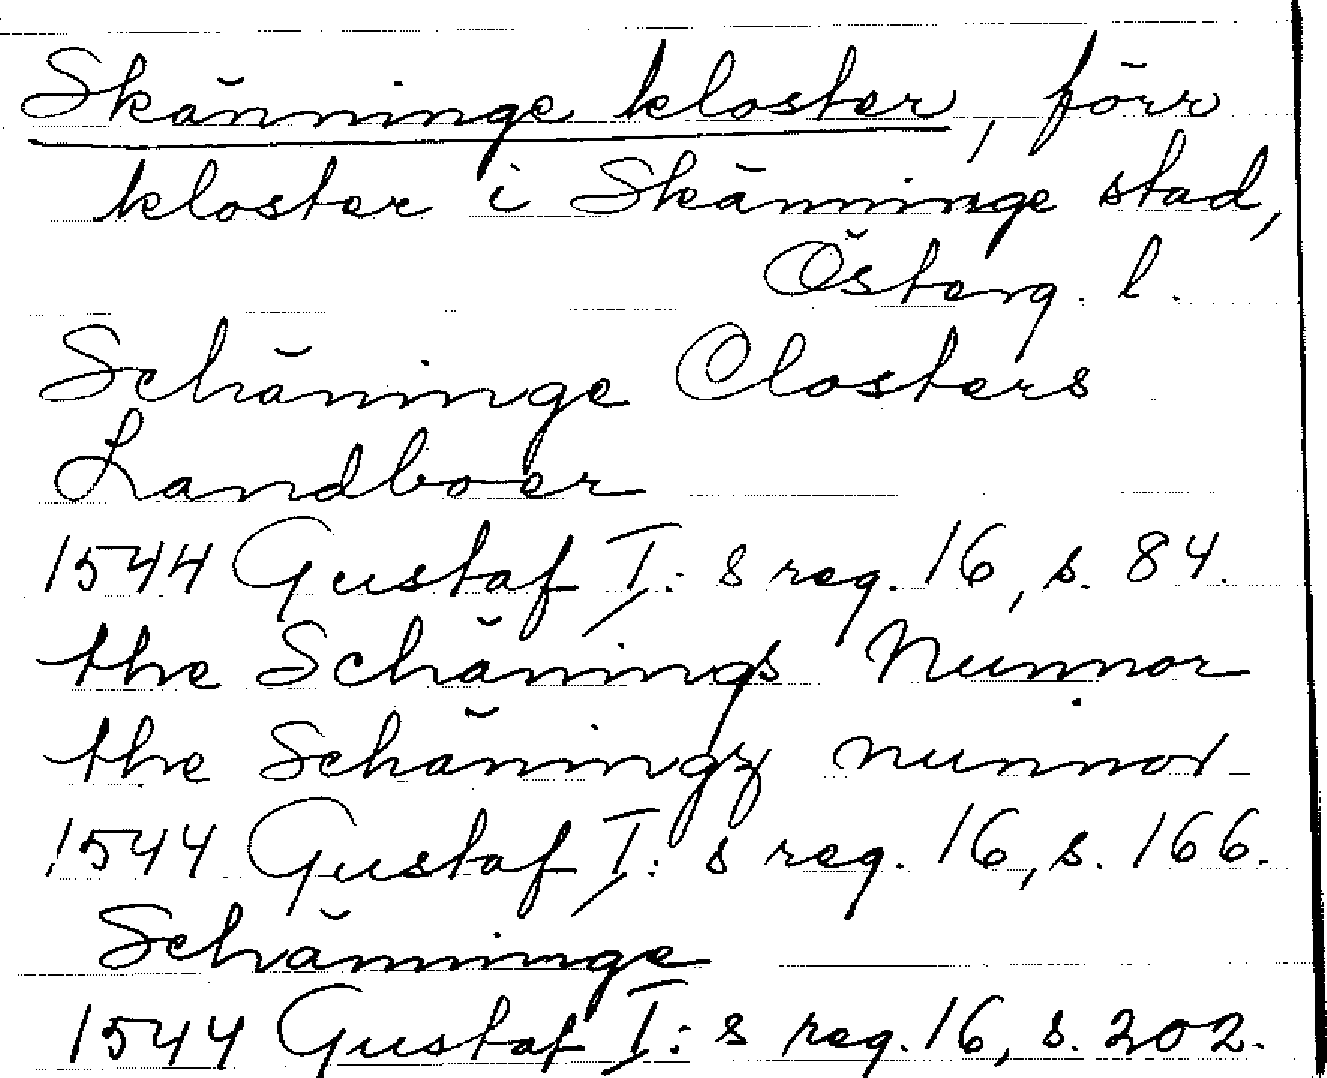 Skänninge kloster, förr
kloster i Skänninge stad,
Österg. l.
Schäninge Closters
Landboer
1544 Gustaf I:s reg. 16, s. 84.
the Schänings Nunnor
the Schäningz nunnor
1544 Gustaf I:s reg. 16, s. 166.
Schänninge
1544 Gustaf I:s reg. 16, s. 202.